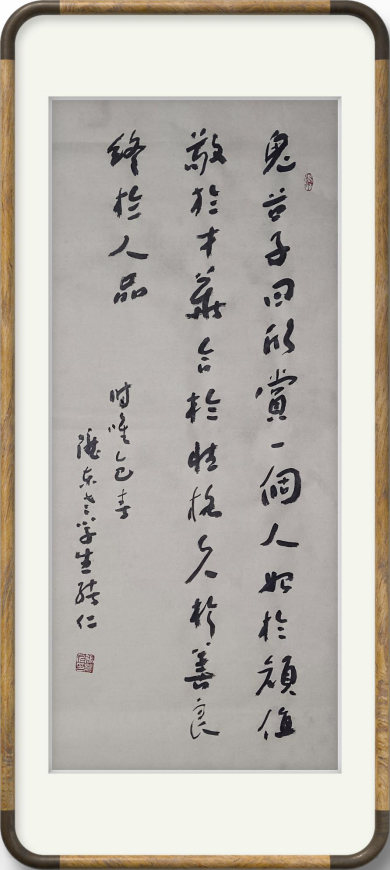 鬼谷子曰欣賞一個人始於顔值
敬於才華合於性格久於善良
終於人品
时唯乙巳春
隴东老学生仁